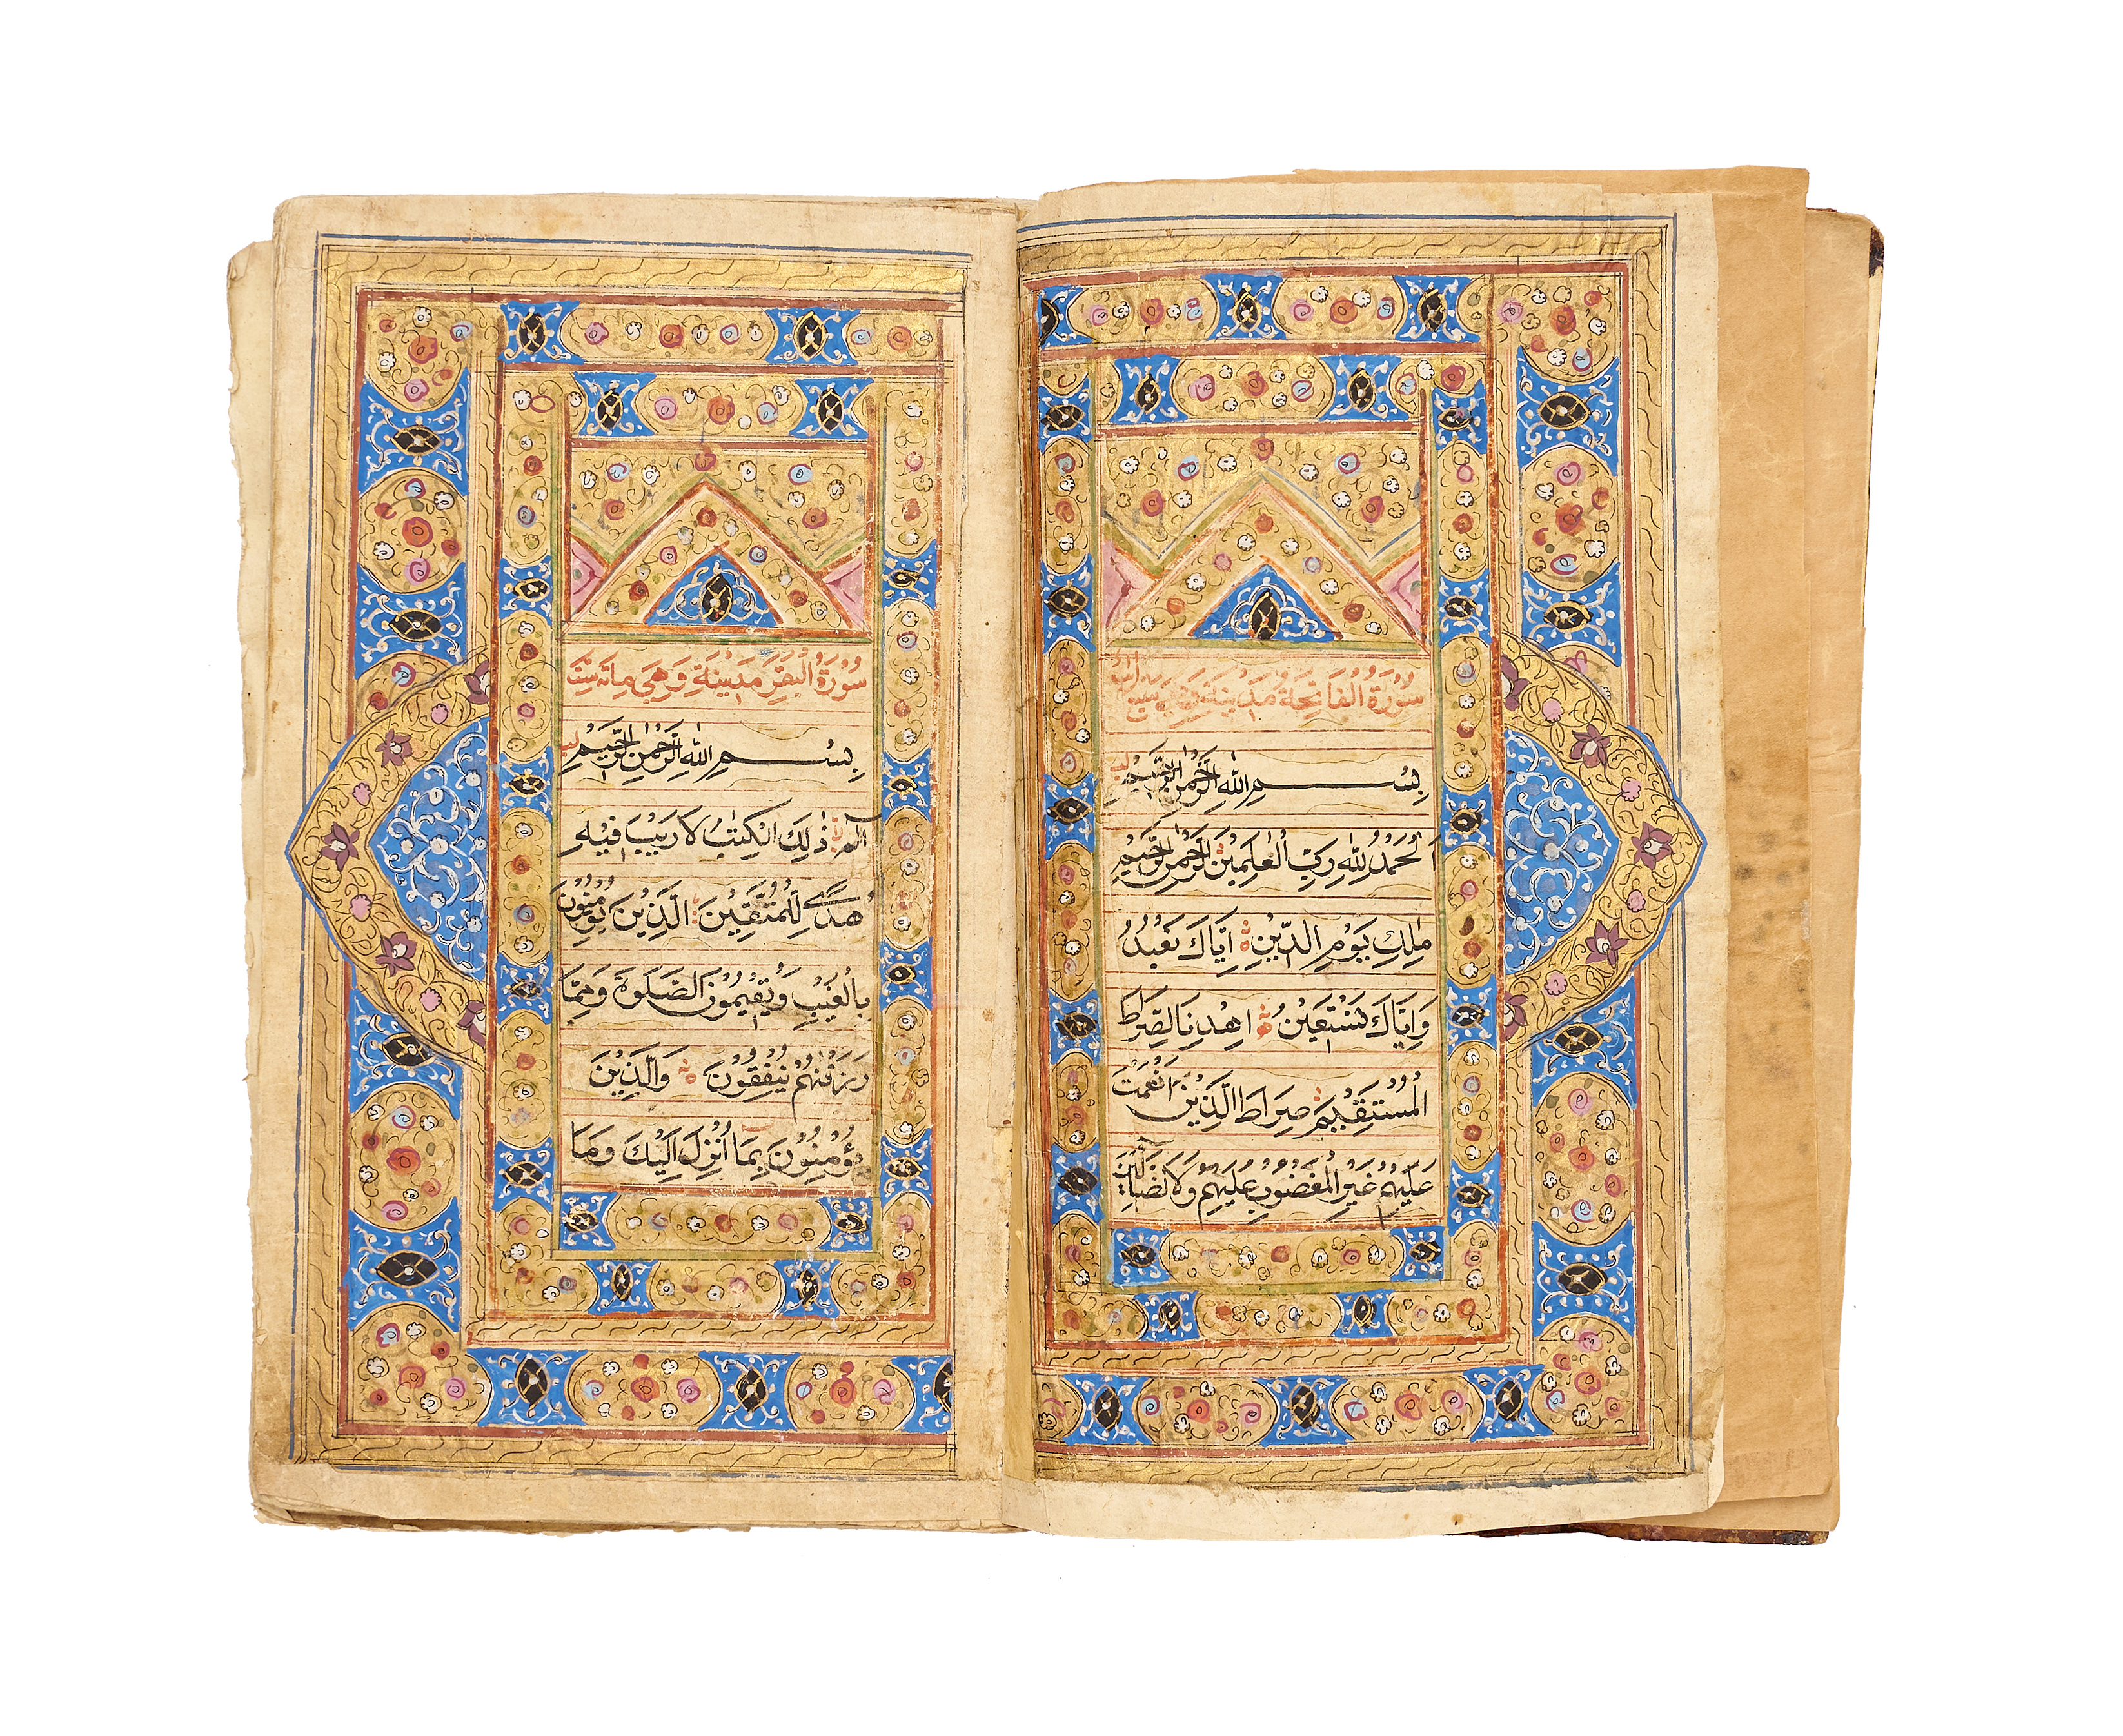 سُوْرَةُ الْفَاتِحَةِ مَدَنِيَّةٌ وَهِيَ سَبْعُ
بِسْمِ اللهِ الرَّحْمٰنِ الرَّحِيْمِ
اَلْحَمْدُ لِلّٰهِ رَبِّ الْعٰلَمِيْنَ الرَّحْمٰنِ الرَّحِيْمِ
مٰلِكِ يَوْمِ الدِّيْنِ اِيَّاكَ نَعْبُدُ
وَاِيَّاكَ نَسْتَعِيْنُ اِهْدِنَا الصِّرَاطَ
الْمُسْتَقِيْمَ صِرَاطَ الَّذِيْنَ اَنْعَمْتَ
عَلَيْهِمْ غَيْرِ الْمَغْضُوْبِ عَلَيْهِمْ وَلَا الضَّآلِّيْنَ
سُوْرَةُ الْبَقَرِ مَدَنِيَّةٌ وَهِيَ مِاتَه سِتَّ
بِسْمِ اللهِ الرَّحْمٰنِ الرَّحِيْمِ
الٓمٓ ذٰلِكَ الْكِتٰبُ لَا رَيْبَ فِيْهِ
هُدًى لِّلْمُتَّقِيْنَ الَّذِيْنَ يُؤْمِنُوْنَ
بِالْغَيْبِ وَيُقِيْمُوْنَ الصَّلٰوةَ وَمِمَّا
رَزَقْنٰهُمْ يُنْفِقُوْنَ وَالَّذِيْنَ
يُؤْمِنُوْنَ بِمَا اُنْزِلَ اِلَيْكَ وَمَا